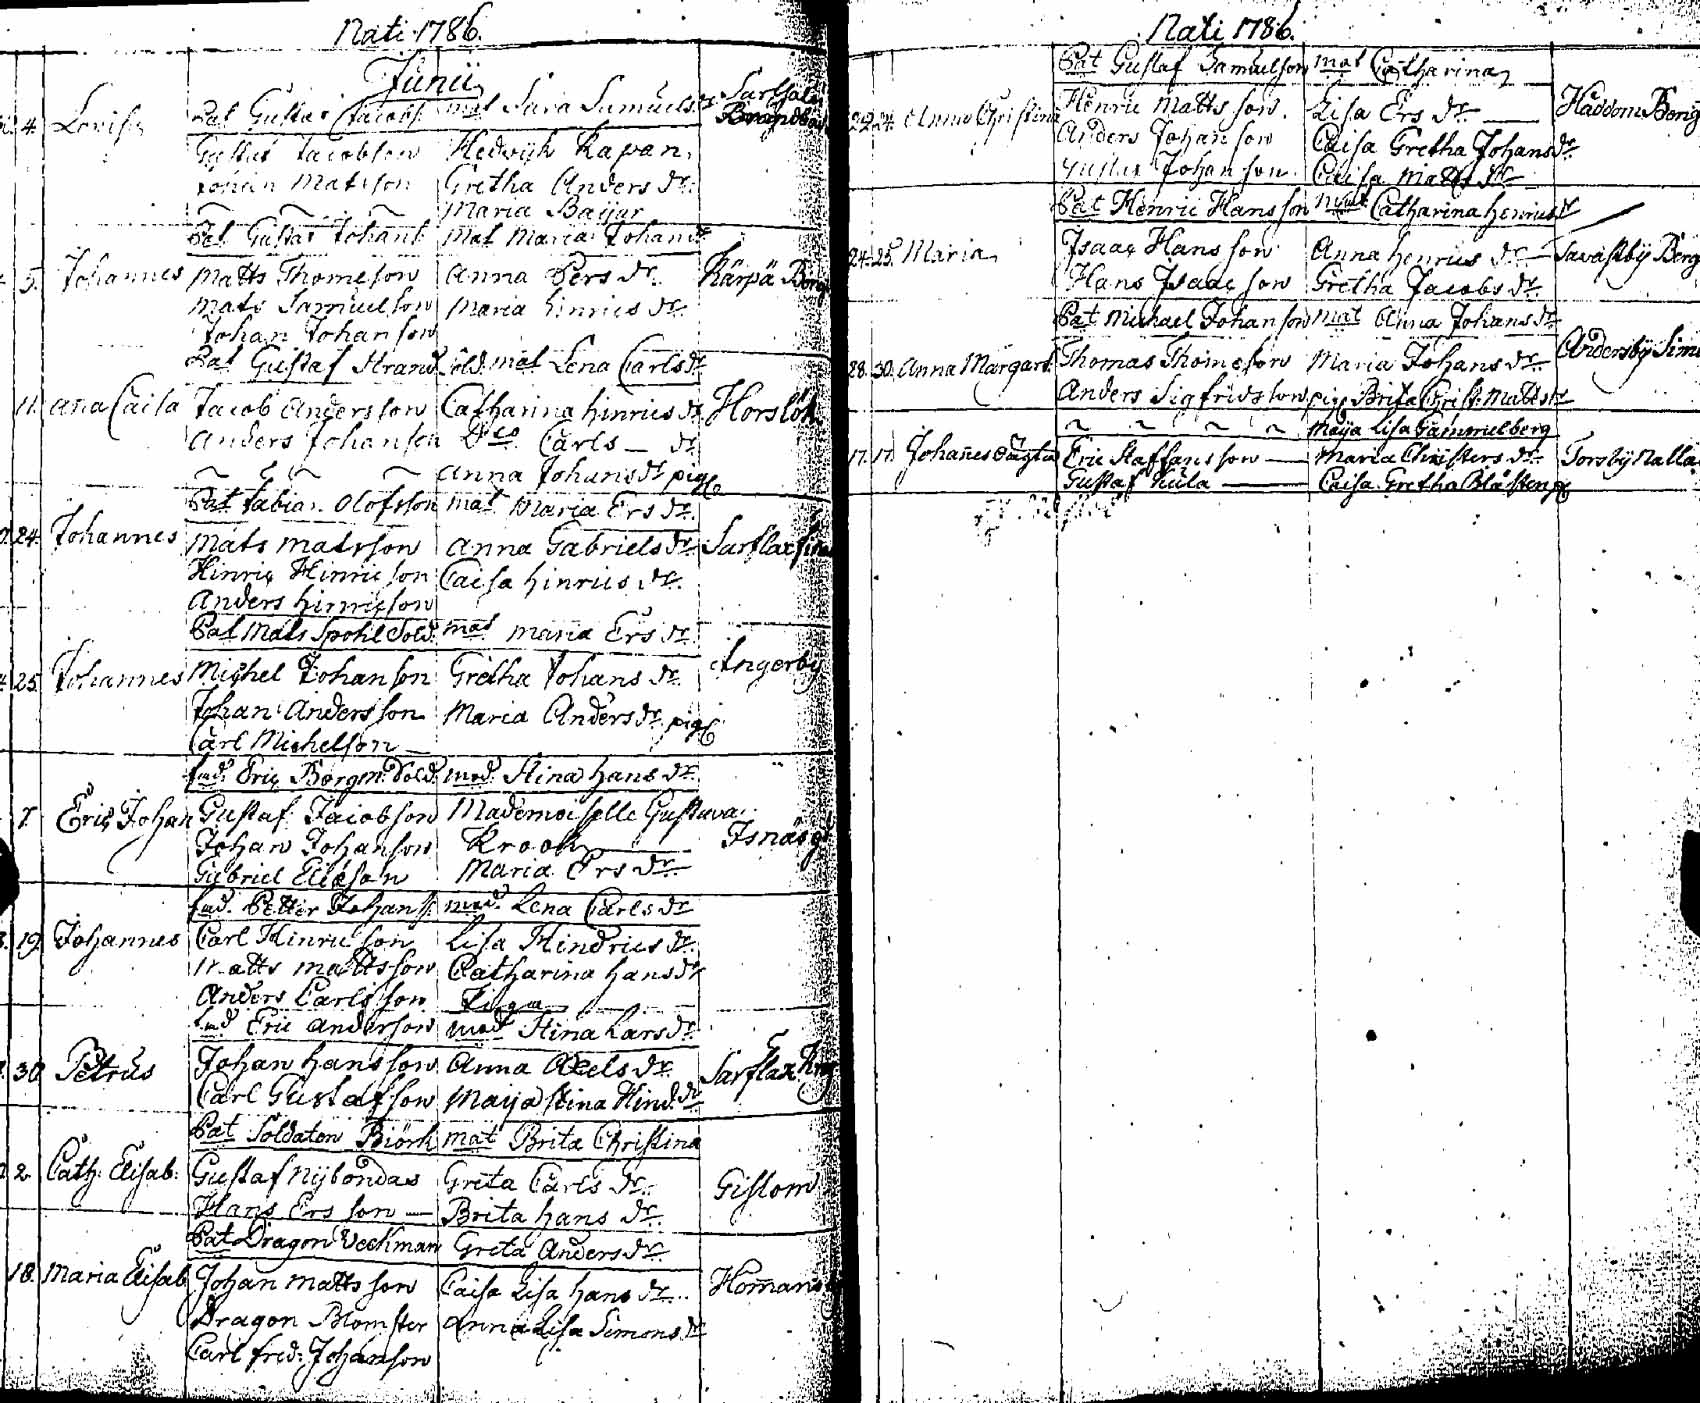 Nati 1786.
Junii
4. Lovisa Pat Gustav Jacobs. mat Sara Samuels dr Sarfsala
Gustav Jacobson Hedvigh Rapan,
Johan Matsson Gretha Anders dr.
Maria Baijar
Pat. Gustav Johans. Mat Maria Johans dr
5. Johannes Matts Thomeson Anna Pers dr. Kärpä Borg
Mats Samuelson Maria hinrics dr.
Johan Johanson
Pat Gustaf Strand Sold. mat Lena Carls dr
11. Aña Caisa Jacob Andersson Catharina hinrics dr Horslök
Anders Johanson Dito Carls dr
Anna Johans dr pig
Pat. Fabian Olofsson mat Maria Ers dr.
24. Johannes Mats Matsson Anna Gabriels dr. Sarflax
Hinric Hinricson Caisa hinrics dr.
Anders hinricson
Pat Mats Spohl Sold. mat maria Ers dr.
25. Johannes Michel Johanson Gretha Johans dr. Ingerby
Johan Andersson Maria Anders dr. pig
Carl Michelson
fad. Eric Borgm. Sold. mod. Stina hans dr.
7. Eric Johan Gustaf Jacobson Mademoiselle Gustava
Johan Johanson Krook Isnäs
Gabriel Eliæson Maria Ers dr.
fad. Petter Johans. mod. Lena Carls dr
19. Johannes Carl Hinricson Lisa Hindrics dr.
Matts Mattsson Catharina hans dr
Anders Carlsson Piga
fad Eric Anderson mod Stina Lars dr.
30 Petrus Johan hansson Anna Axels dr. Sarflax
Carl Gustafson Maija Stina Hind. dr
Pat Soldaten Biörk mat Brita Christina
2 Cath: Elisab: Gustaf Nybondas Greta Carls dr. Gislom
Hans Ersson Brita hans dr.
Pat Dragon Veckman Greta Anders dr.
18. Maria Elisab Johan Mattsson Caisa Lisa hans dr. Homans
Dragon Blomster Anna Lisa Simons dr
Carl fred: Johanson
Nati 1786.
Pat Gustaf Samuelson mat Catharina
22. 24. Anna Christina Henric Mattsson. Lisa Ers dr. Haddom Borg
Anders Johanson Caisa Gretha Johans dr.
Gustav Johanson. Caisa Matts dr
Pat Henric Hansson mat Catharina henrics dr
24. 25. Maria Isaac Hansson Anna henrics dr. Savastby Berg
Hans Isaacson Gretha Jacobs dr.
Pat Michael Johanson mat Anna Johans dr
28. 30. Anna Margart. Thomas Thomeson Maria Johans dr. Andersby
Anders Sigfridson pig Brita Christ. Matts dr
Maija Lisa Gammelberg
17. 17. Johañes oägta Eric Staffansson Maria Christers dr. Torsby
Gustaf Kula Caisa Gretha Blåsten